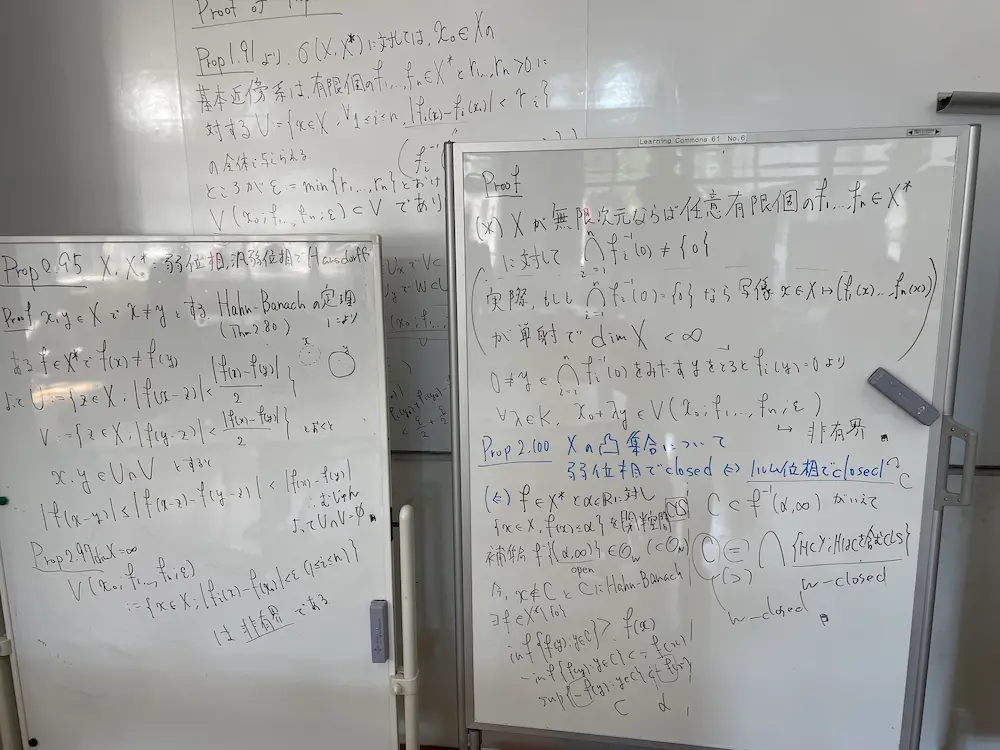 Proof of
Prop 1.91 より, σ(X, X*) に対しては, x₀∈X の
基本近傍系は, 有限個の f₁,…,fₙ∈X* と r₁,…,rₙ>0 に
対する U = {x∈X ; ∀1≤i≤n, |fᵢ(x)-fᵢ(x₀)| < rᵢ}
の全体で与えられる.
ところが ε := min{r₁,…,rₙ} とおけ
V(x₀; f₁,…,fₙ; ε) ⊂ V であり
Prop 2.95 X, X* : 弱位相, 汎弱位相で Hausdorff
Proof x,y∈X で x≠y とする Hahn-Banach の定理
(Thm 2.80) により
ある f∈X* で f(x)≠f(y)
よって U := {z∈X ; |f(x-z)| < |f(x)-f(y)|/2}
V := {z∈X ; |f(y-z)| < |f(x)-f(y)|/2} とおくと
x, y ∈ U∩V とすると
|f(x-y)| ≤ |f(x-z)-f(y-z)| < |f(x)-f(y)|
よって U∩V=∅
Prop 2.97 dim X=∞
V(x₀; f₁,…,fₙ; ε)
:= {x∈X ; |fᵢ(x)-fᵢ(x₀)|<ε (1≤i≤n)}
は 非有界 である
Learning Commons 61 No.6
Proof
(※) X が 無限次元ならば任意有限個の f₁,…,fₙ∈X*
に対して ⋂ᵢ₌₁ⁿ fᵢ⁻¹(0) ≠ {0}
(実際, もしも ⋂ᵢ₌₁ⁿ fᵢ⁻¹(0) = {0} なら 写像 x∈X ↦ (f₁(x),…,fₙ(x))
が単射で dim X < ∞)
0≠y∈ ⋂ᵢ₌₁ⁿ fᵢ⁻¹(0) をみたす y をとると fᵢ(y)=0 より
∀λ∈K, x₀+λy∈V(x₀; f₁,…,fₙ; ε)
↳ 非有界.
Prop 2.100 X の凸集合について
弱位相で closed ⇔ ノルム位相で closed
C
(⇐) f∈X* と α∈ℝ に対し
{x∈X, f(x)≤α} を閉半空間 CLS
補集合 f⁻¹{(α,∞)} ∈ O_w (⊂O_N)
open
今, x∉C と C に Hahn-Banach
∃f∈X*\{0}
inf{f(y) : y∈C} > f(x)
-inf{f(y) : y∈C} < -f(x)
sup{-f(y) : y∈C} < -f(x)
C α
C ⊂ f⁻¹(α,∞) がいえて
C = ⋂ {H⊂Y ; H は C を含む CLS}
(⊃)
w-closed
w-closed